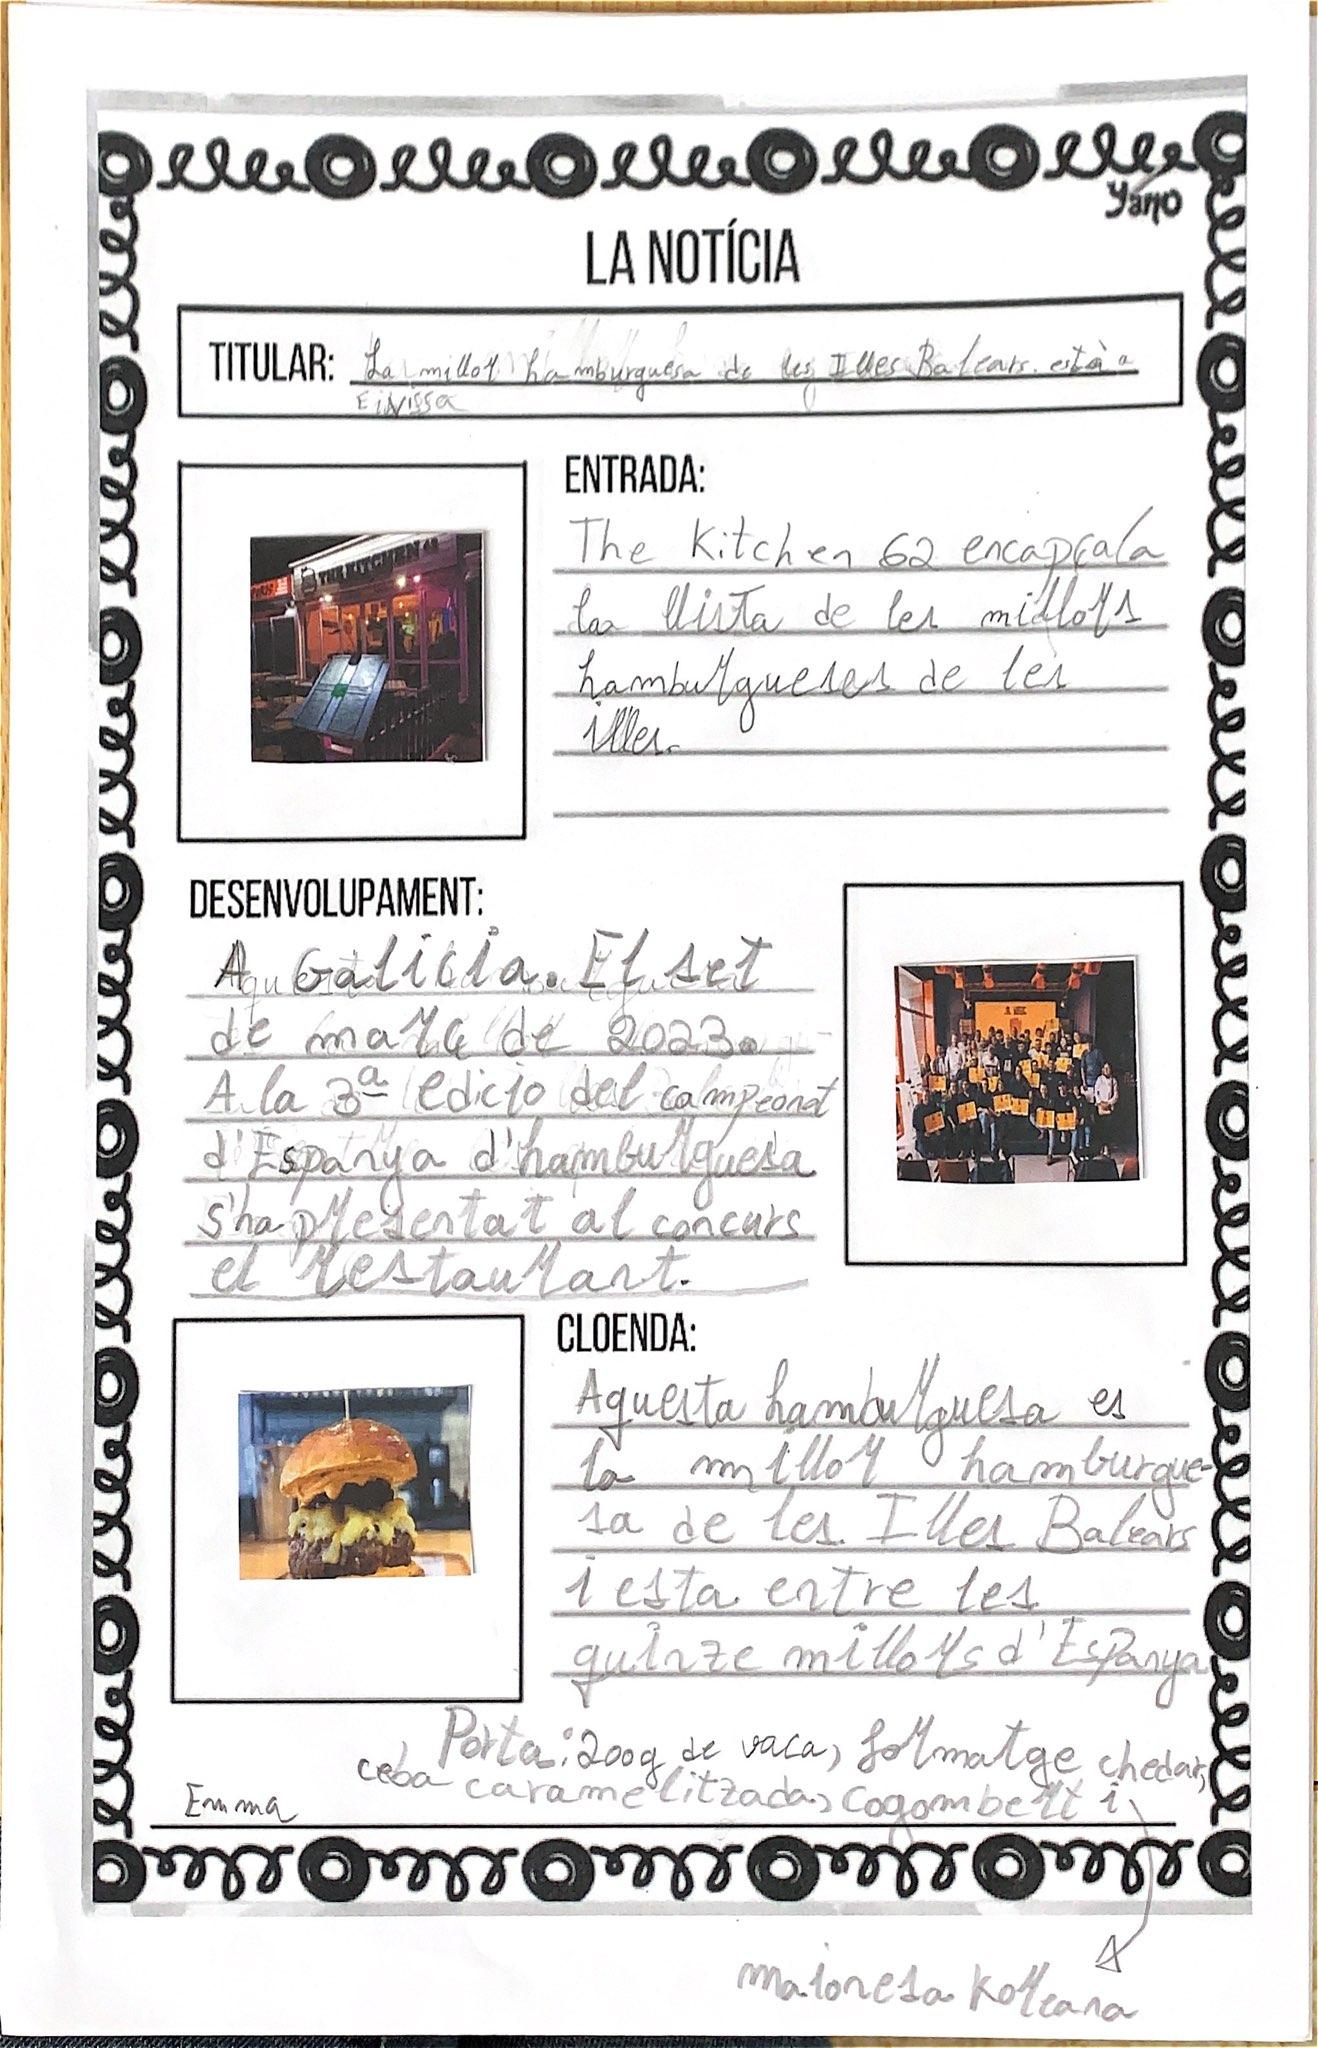 Yano
LA NOTÍCIA
TITULAR: La millor hamburguesa de les Illes Balears està a
Eivissa
THE KITCHEN 62
ENTRADA:
The Kitchen 62 encapçala
la llista de les millors
hamburgueses de les
illes.
DESENVOLUPAMENT:
A Galicia. El set
de març de 2023.
A la 3ª edicio del campeonat
d'Espanya d'hamburguesa
s'ha presentat al concurs
el restaurant.
CLOENDA:
Aquesta hamburguesa es
la millor hamburgue-
sa de les Illes Balears
i esta entre les
quinze millors d'Espanya
Porta: 200g de vaca, formatge chedar,
ceba caramelitzada, cogombert i
Emma
maionesa Koreana